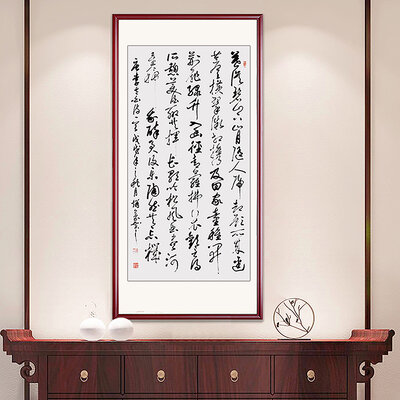 暮從碧山下山月隨人歸却顧所來徑
蒼蒼橫翠微相携及田家童稚開
荊扉綠竹入幽徑青蘿拂行衣歡言得
所憩美酒聊共揮長歌吟松風曲盡河
星稀我醉君復樂陶然共忘機
唐李太白詩一首戊戌年之秋月